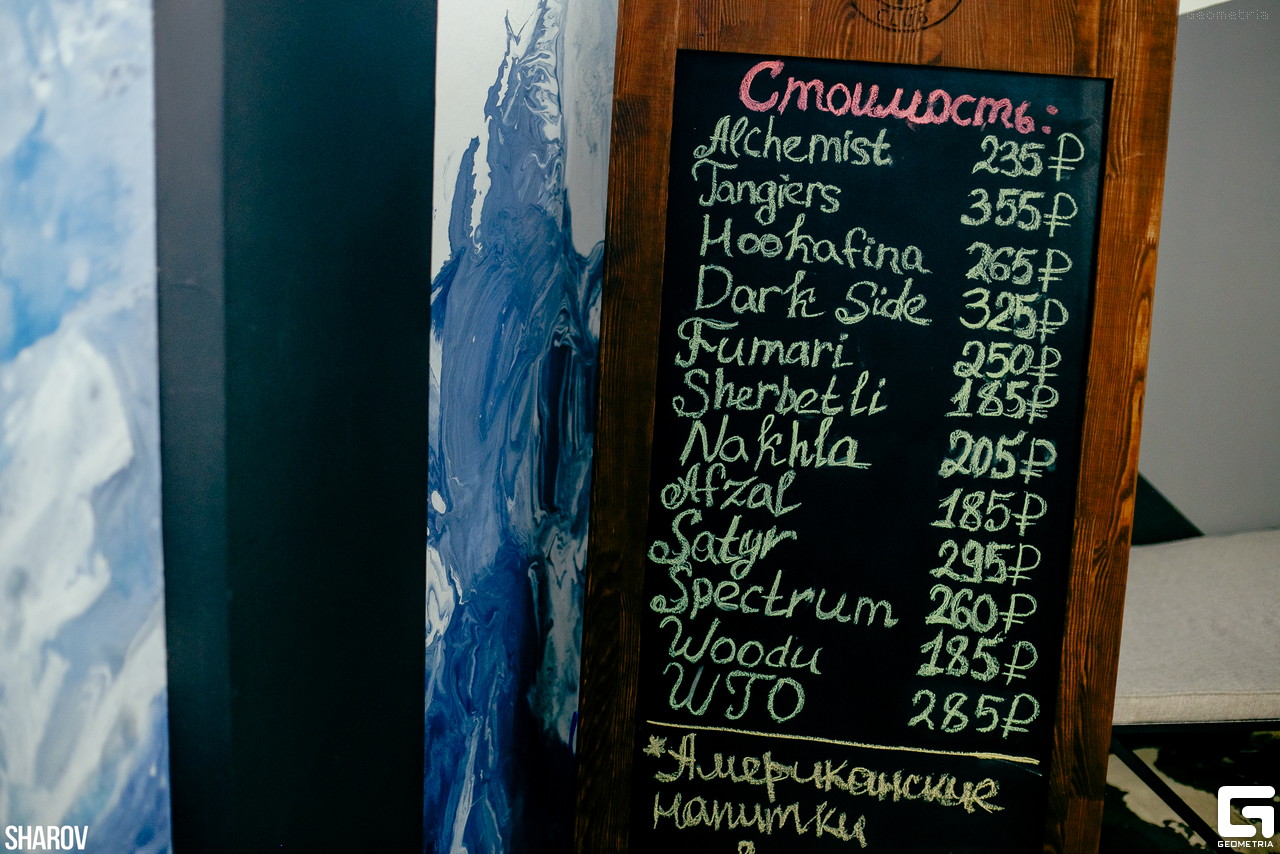 CLUB
geometria
Стоимость:
Alchemist 235₽
Tangiers 355₽
Hookafina 265₽
Dark Side 325₽
Fumari 250₽
Sherbetli 185₽
Nakhla 205₽
Afzal 185₽
Satyr 295₽
Spectrum 260₽
Woodu 185₽
WTO 285₽
*Американские
напитки
SHAROV
GEOMETRIA